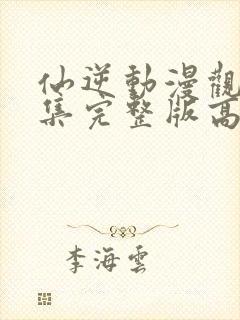 仙逆動漫觀
集完整版高
李海雲